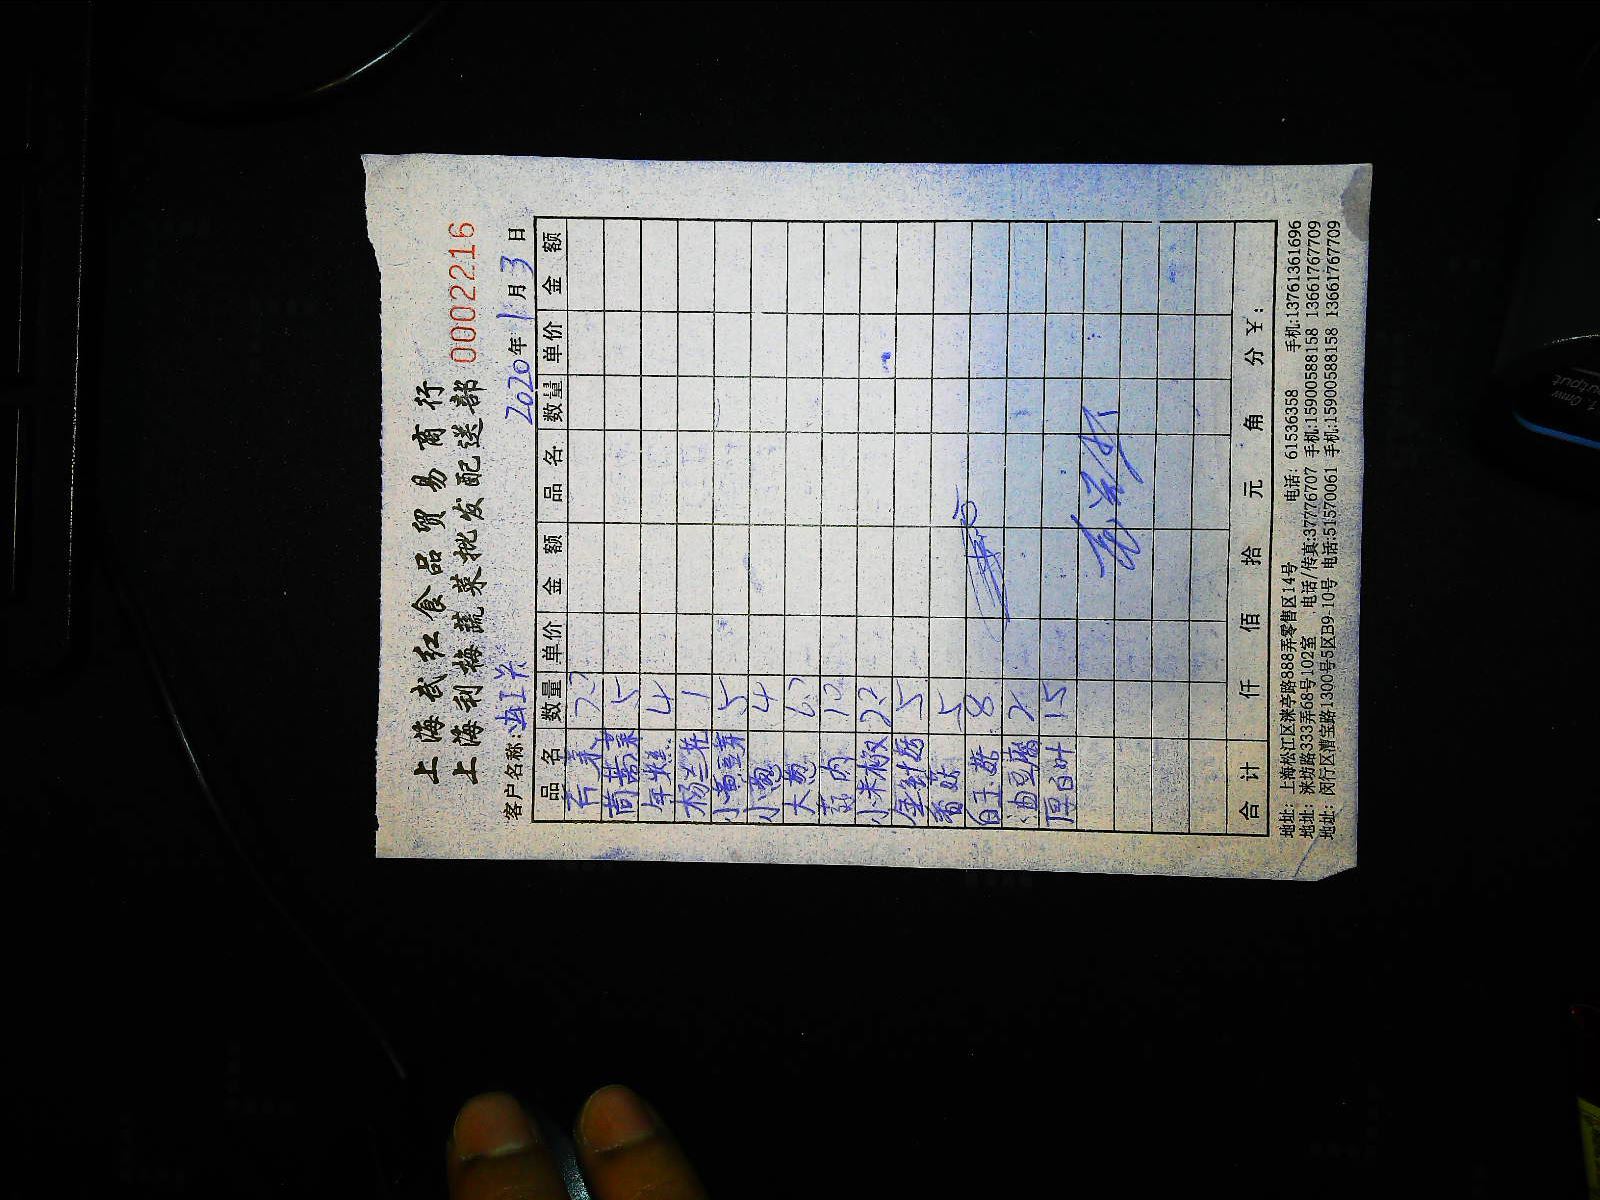 上海武红食品贸易商行
上海利梅蔬菜批发配送部 0002216
客户名称: 2020年1月3日
品名 数量 单价 金额 品名 数量 单价 金额
茼蒿菜 5
年糕 4
杨兰花 1
小黄豆芽 5
小葱 4
大葱
蒜肉 10
小米椒 22
金针菇 5
香菇 5
白玉菇 8
油豆腐 2
厚百叶 15
合计 仟 佰 拾 元 角 分 ¥:
地址: 上海松江区涞亭路888弄零售区14号 电话: 61536358 手机:13761361696
地址: 涞坊路333弄68号102室 电话/传真:37776707 手机:15900588158 13661767709
地址: 闵行区漕宝路1300号5区B9-10号 电话:51570061 手机:15900588158 13661767709